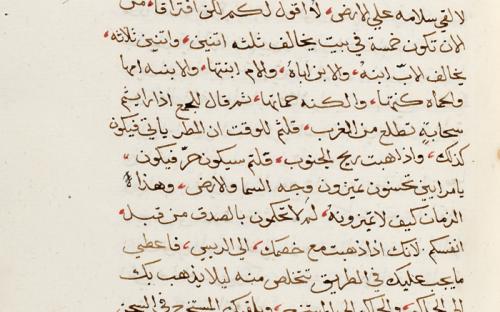 لالقي سلامه علي الارض، لا اقول لكم لكن افتراقا، من
الان تكون خمسة في بيت يخالف ثلثه اتنين، واتنين ثلاثه،
يخالف الاب ابنه، والابن اباه، والام ابنتها، والابنه امها
والحماه كنتها، والكنه حماتها، ثم قال للجمع اذا رايتم
سحابة تطلع من المغرب، قلتم للوقت ان المطر ياتي فيكون
كذلك، واذا هبت ريح الجنوب، قلتم سيكون حر فيكون
يامرايين تحسنون تميزون وجه السما والارض، وهذا
الزمان كيف لا تميزونه، لم لا تحكمون بالصدق من قبل
انفسكم لانك اذا ذهبت مع خصمك، الي الرييس، فاعطي
ما يجب عليك في الطريق تتخلص منه ليلا يذهب بك
الي الحاكم، والحاكم المستخرج في السجن